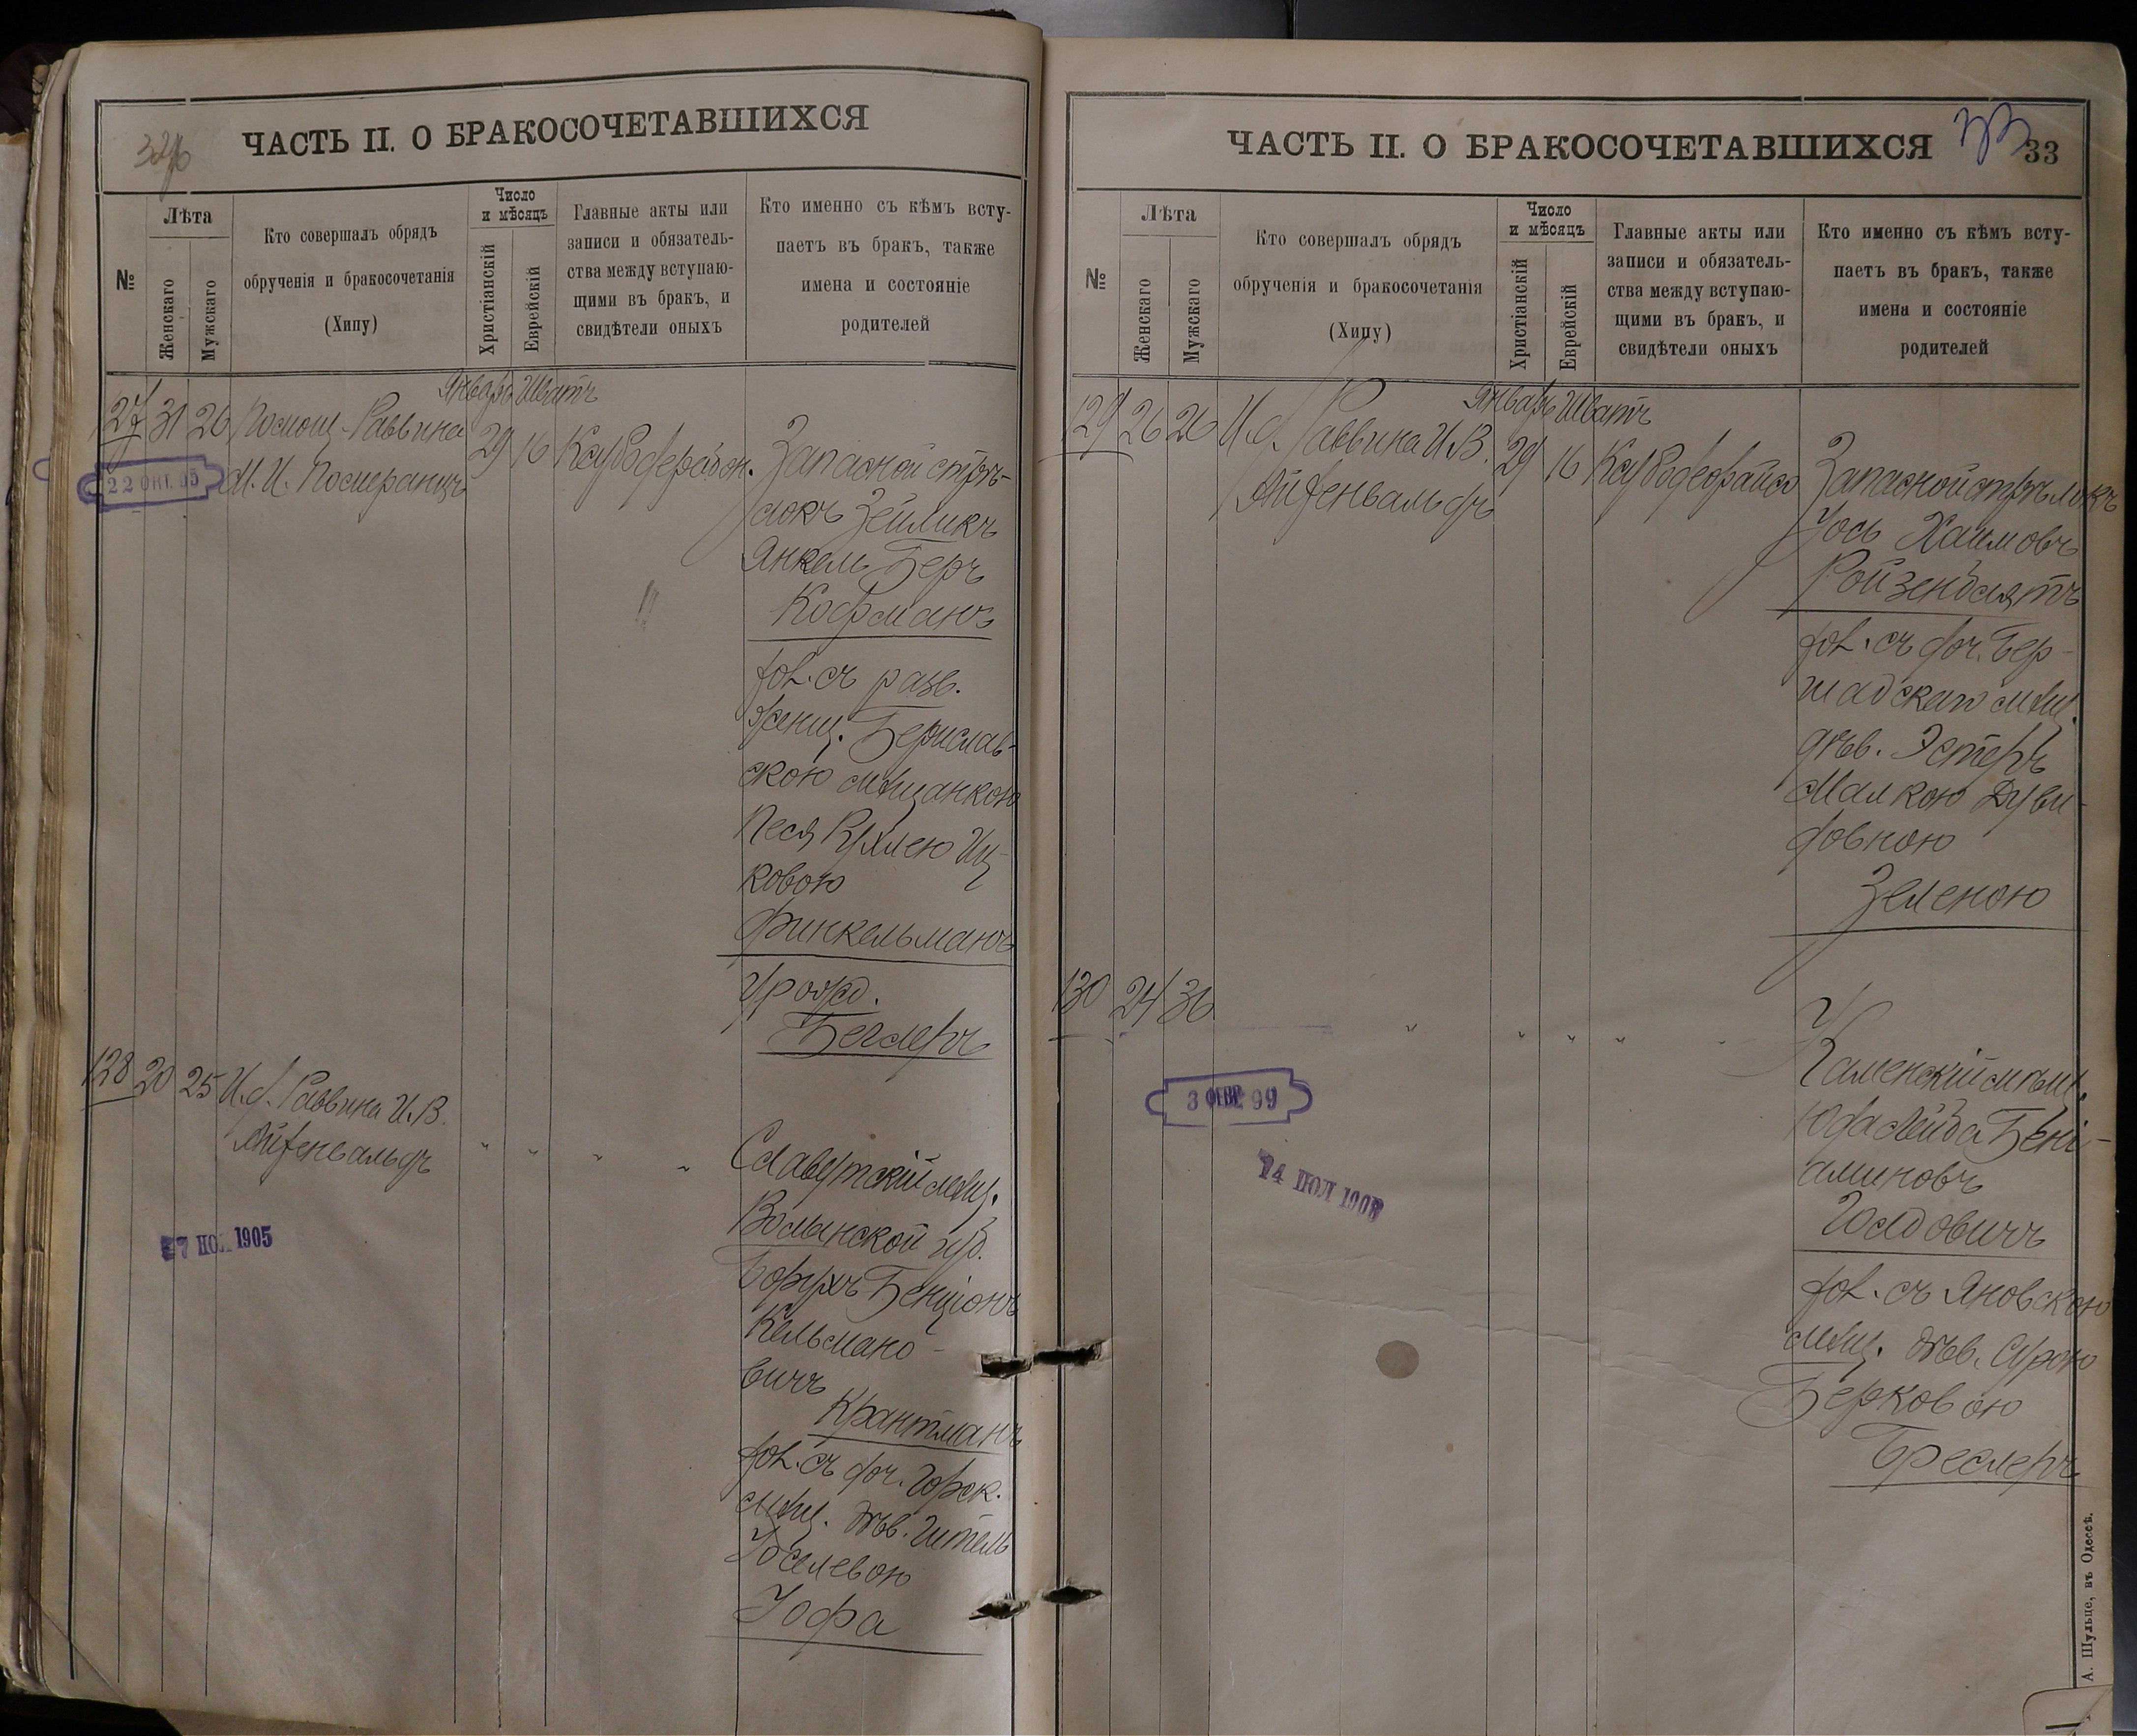 32 об
ЧАСТЬ II. О БРАКОСОЧЕТАВШИХСЯ
№
Лѣта
Женскаго
Мужскаго
Кто совершалъ обрядъ
обрученія и бракосочетанія
(Хипу)
Число
и мѣсяцъ
Христіанскій
Еврейскій
Главные акты или
записи и обязатель-
ства между вступаю-
щими въ бракъ, и
свидѣтели оныхъ
Кто именно съ кѣмъ всту-
паетъ въ бракъ, также
имена и состояніе
родителей
Январь Шватъ
127 31 26 Помощ. Раввина 29 16
М. И. Померанцъ
22 ОКТ. 95
Запасной стрѣ-
локъ Зейликъ
Янкель Беръ
Кофманъ
съ разв.
женщ. Берислав-
скою мѣщанкою
Песя Рухлею Иц-
ковою
Финкельманъ
урожд.
Беслеръ
128 20 25 И. д. Раввина И. В.
Айзенвальдъ
" " " "
7 ІЮЛ 1905
Славутскій мѣщ.
Волынской губ.
Борухъ Бенціонъ
Кельмано-
вичъ
Крантманъ
съ доч. Горск.
мѣщ. дѣв. Гитель
Іоселевою
Іофа
ЧАСТЬ II. О БРАКОСОЧЕТАВШИХСЯ
33
33
№
Лѣта
Женскаго
Мужскаго
Кто совершалъ обрядъ
обрученія и бракосочетанія
(Хипу)
Число
и мѣсяцъ
Христіанскій
Еврейскій
Главные акты или
записи и обязатель-
ства между вступаю-
щими въ бракъ, и
свидѣтели оныхъ
Кто именно съ кѣмъ всту-
паетъ въ бракъ, также
имена и состояніе
родителей
Январь Шватъ
129 26 26 И. д. Раввина И. В. 29 16
Айзенвальдъ
Запасной стрѣлокъ
Іось Хаимовъ
Ройзенблятъ
съ доч. Бер-
шадскаго мѣщ.
дѣв. Эстеръ
Малкою Дуви-
довною
Зеленою
130 24 36 " " " "
3 ФЕВР. 99
14 ІЮЛ 1908
Каменскій мѣщ.
Юда Лейба Бені-
аминовъ
Голдовичъ
съ Яновскою
мѣщ. дѣв. Сурою
Берковою
Бреслеръ
А. Шульце, въ Одессѣ.